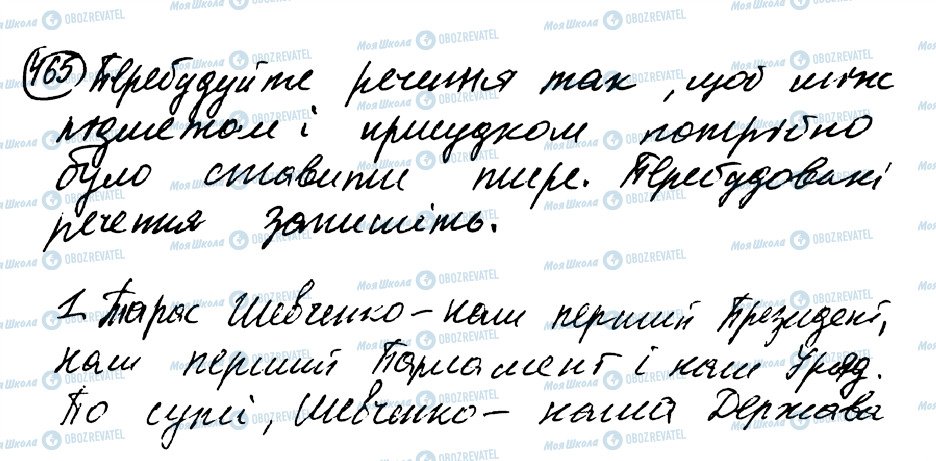 465 Перебудуйте речення так, щоб між
підметом і присудком потрібно
було ставити тире. Перебудовані
речення запишіть.
1. Тарас Шевченко – наш перший Президент,
наш перший Парламент і наш Уряд.
По суті, Шевченко – наша Держава
МояШкола OBOZREVATEL